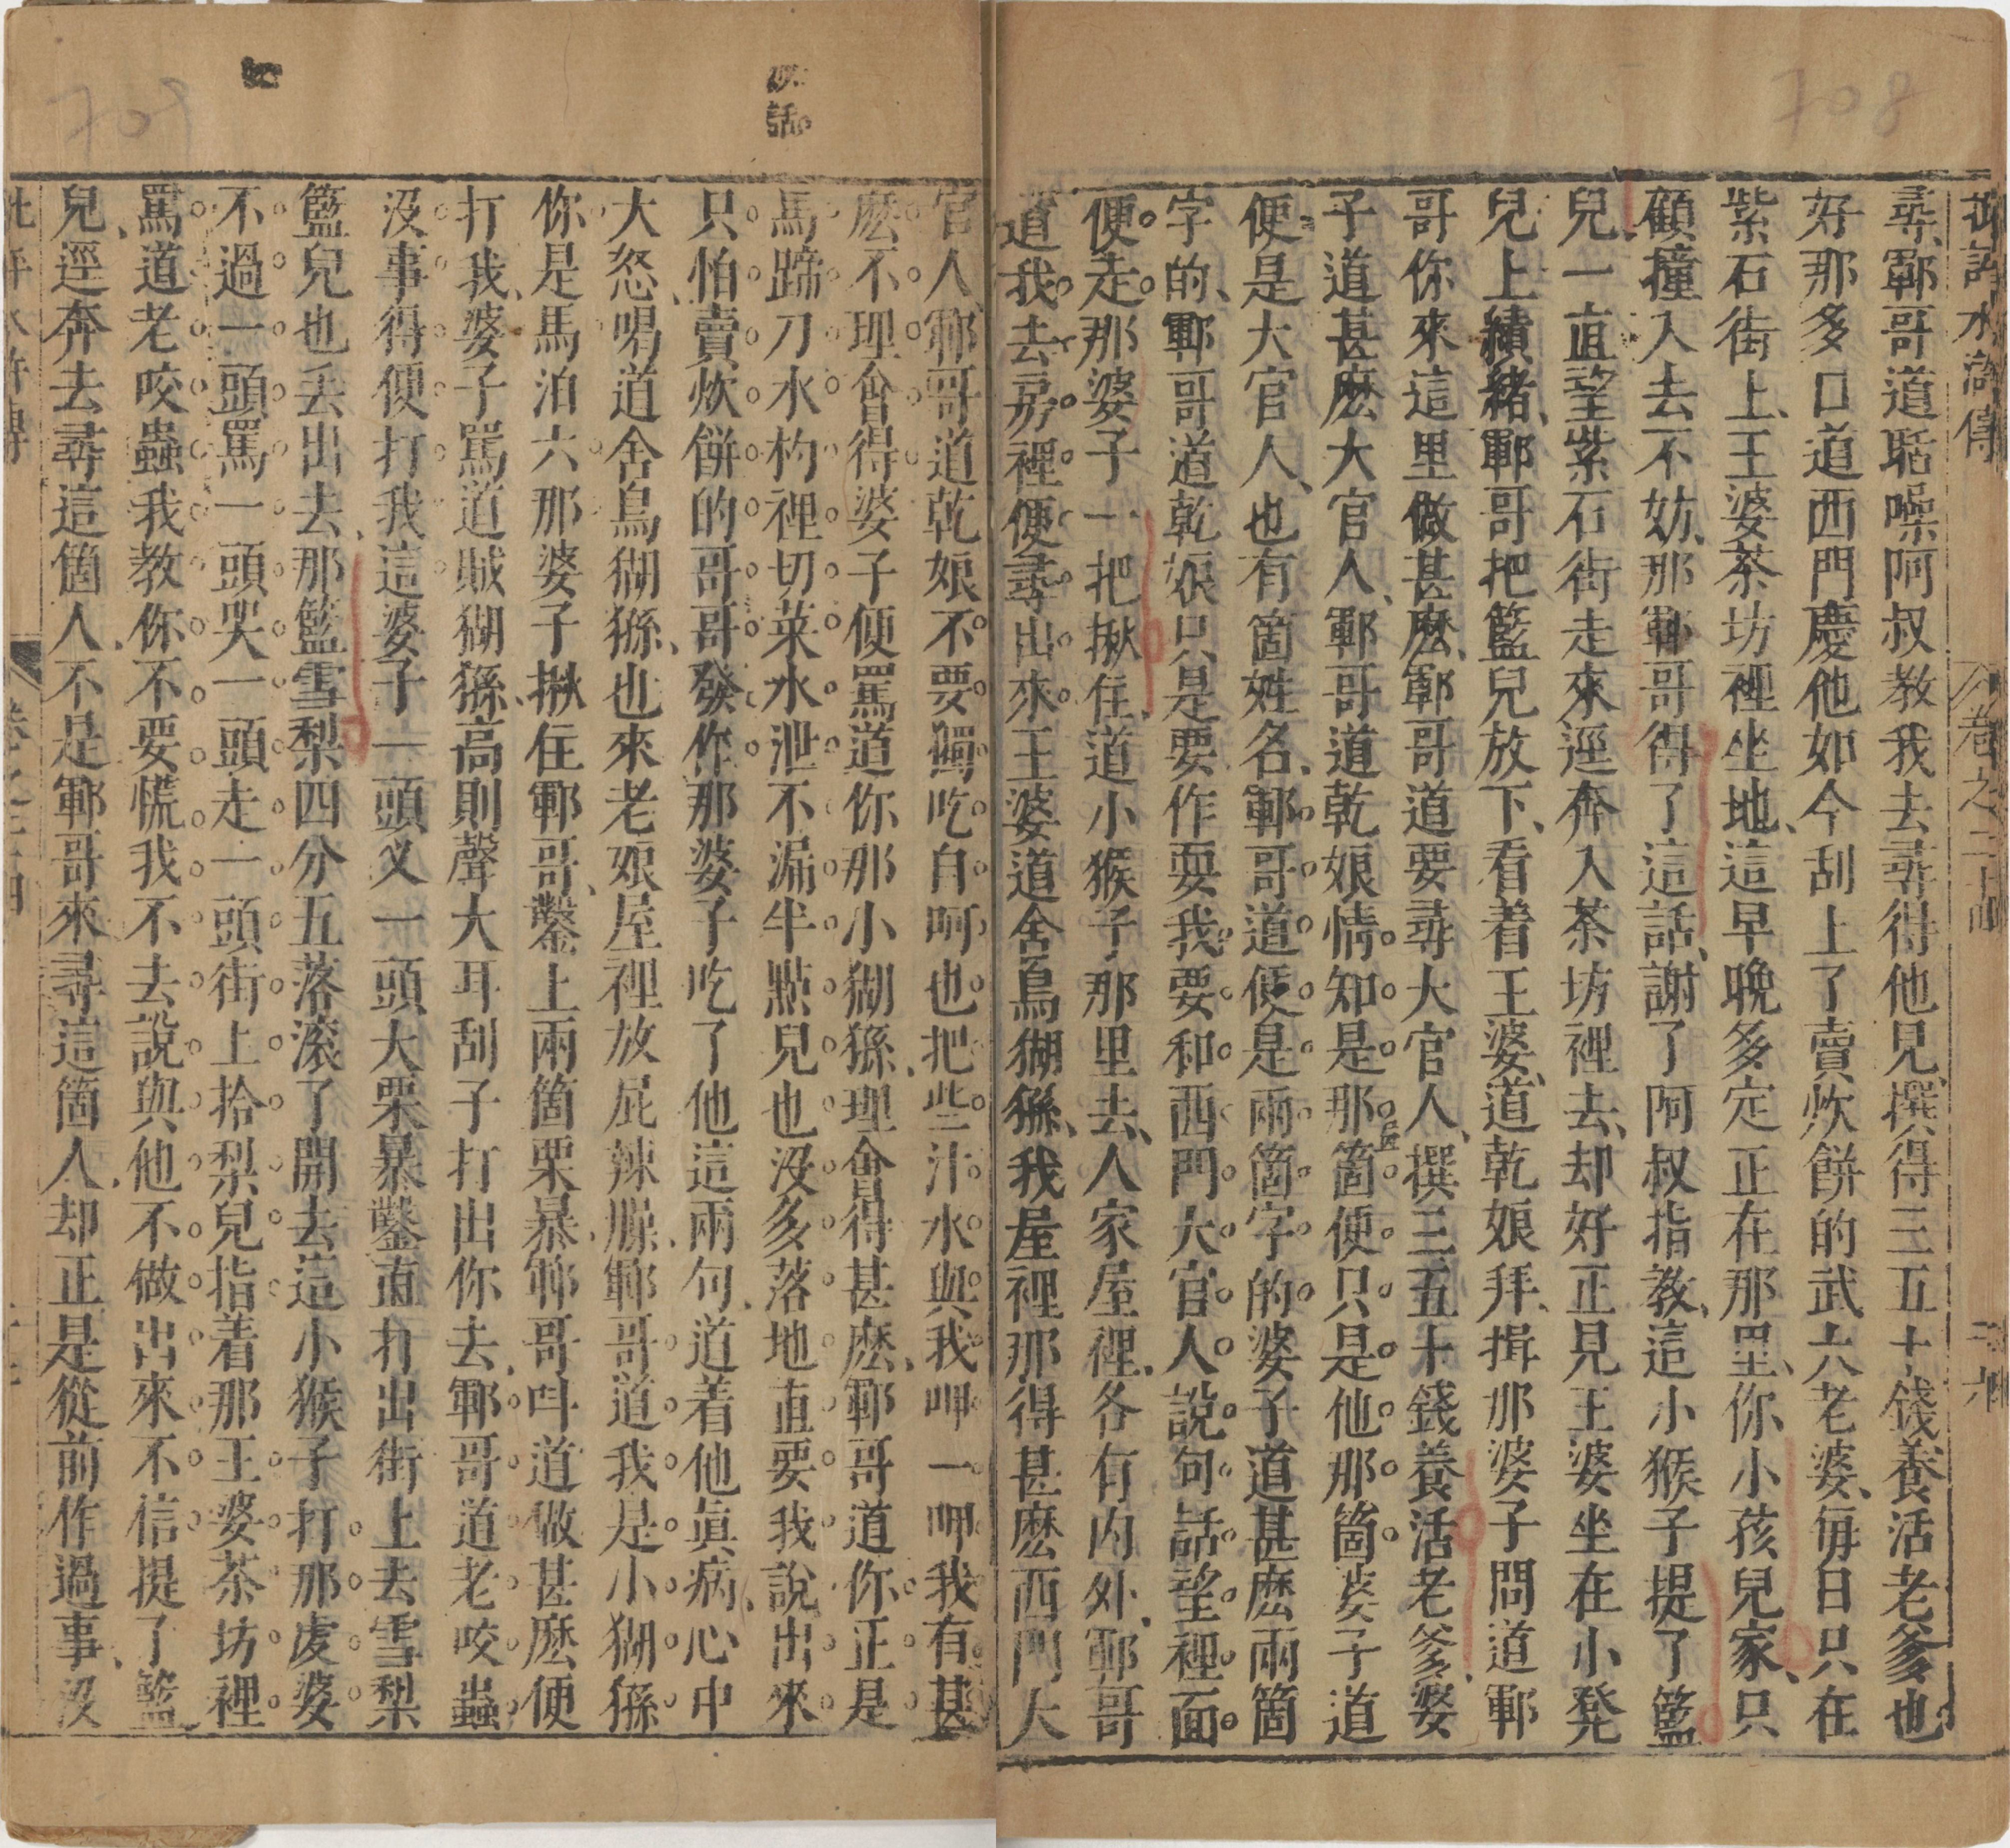 708
批評水滸傳
卷之二十四
尋鄆哥道聒噪阿叔教我去尋得他見撰得三五十錢養活老爹也
好那多口道西門慶他如今刮上了賣炊餅的武大老婆每日只在
紫石街上王婆茶坊裡坐地這早晚多定正在那里你小孩兒家只
顧撞入去不妨那鄆哥得了這話謝了阿叔指教這小猴子提了籃
兒一直望紫石街走來逕奔入茶坊裡去却好正見王婆坐在小凳
兒上績緒鄆哥把籃兒放下看着王婆道乾娘拜揖那婆子問道鄆
哥你來這里做甚麽鄆哥道要尋大官人撰三五十錢養活老爹婆
子道甚麽大官人鄆哥道乾娘情知是那箇便只是他那箇婆子道
便是大官人也有箇姓名鄆哥道便是兩箇字的婆子道甚麽兩箇
字的鄆哥道乾娘只是要作耍我要和西門大官人說句話望裡面
便走那婆子一把揪住道小猴子那里去人家屋裡各有内外鄆哥
道我去房裡便尋出來王婆道含鳥猢猻我屋裡那得甚麽西門大
709
話
官人鄆哥道乾娘不要獨吃自呵也把些汁水與我呷一呷我有甚
麽不理會得婆子便罵道你那小猢猻理會得甚麽鄆哥道你正是
馬蹄刀水杓裡切菜水泄不漏半點兒也沒多落地直要我說出來
只怕賣炊餅的哥哥發作那婆子吃了他這兩句道着他眞病心中
大怒喝道含鳥猢猻也來老娘屋裡放屁辣臊鄆哥道我是小猢猻
你是馬泊六那婆子揪住鄆哥鑿上兩箇栗暴鄆哥叫道做甚麽便
打我婆子罵道賊猢猻高則聲大耳刮子打出你去鄆哥道老咬蟲
沒事得便打我這婆子一頭叉一頭大栗暴鑿直打出街上去雪梨
籃兒也丢出去那籃雪梨四分五落滾了開去這小猴子打那虔婆
不過一頭罵一頭哭一頭走一頭街上拾梨兒指着那王婆茶坊裡
罵道老咬蟲我教你不要慌我不去說與他不做出來不信提了籃
兒逕奔去尋這箇人不是鄆哥來尋這箇人却正是從前作過事沒
批評水滸傳